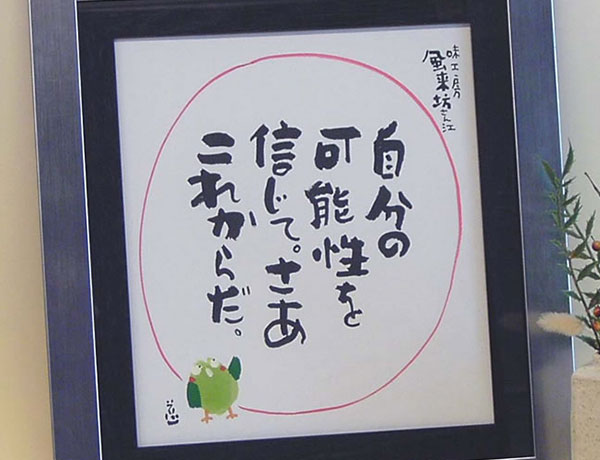 味工房
風来坊さん江
自分の
可能性を
信じて。さあ
これからだ。